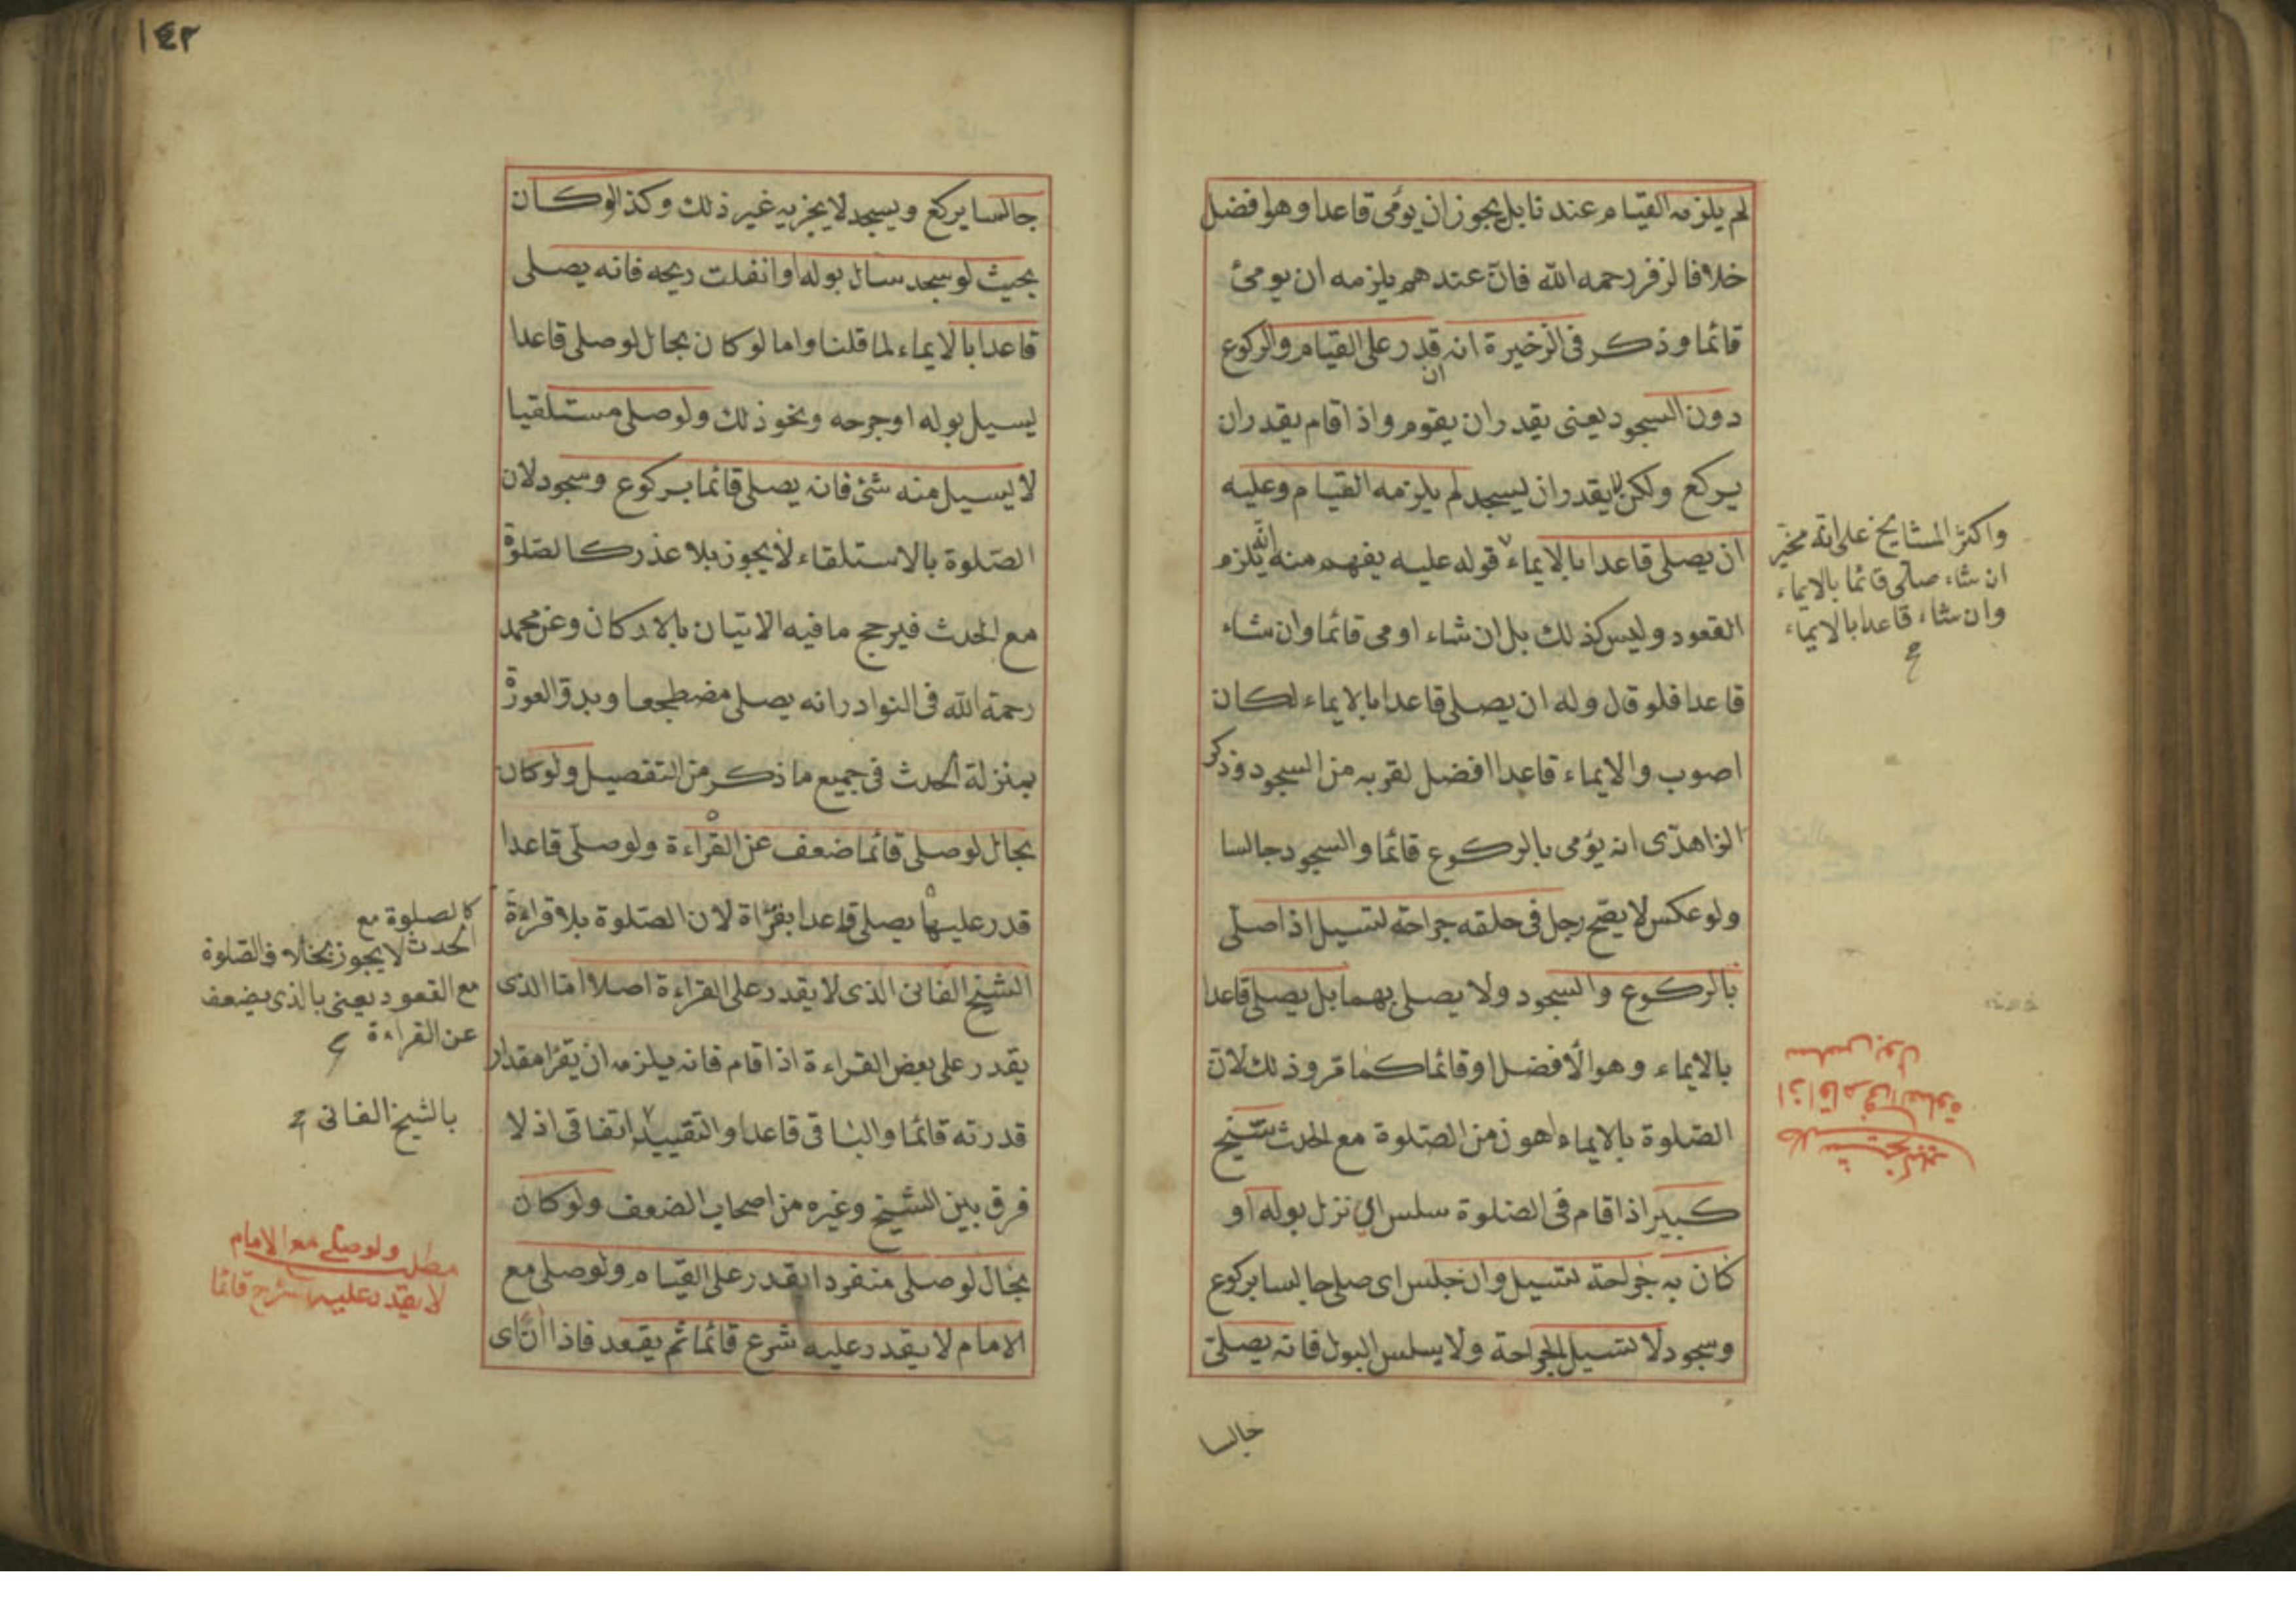 لم يلزمه القيام عندنا بل يجوز ان يومى قاعدا وهو افضل
خلافا لزفر رحمه الله فان عندهم يلزمه ان يومئ
قائما وذكر فى الذخيرة انه ان قدر على القيام والركوع
دون السجود يعنى يقدر ان يقوم واذا قام يقدر ان
يركع ولكن لا يقدر ان يسجد لم يلزمه القيام وعليه
ان يصلى قاعدا بالايماء قوله عليه يفهم منه انه يلزم
القعود وليس كذلك بل ان شاء اومى قائما وان شاء
قاعدا فلو قال وله ان يصلى قاعدا بالايماء لكان
اصوب والايماء قاعدا افضل لقربه من السجود وذكر
الزاهدى انه يؤمى بالركوع قائما والسجود جالسا
ولو عكس لا يصح رجل فى حلقه جراحة لتسيل اذا صلى
بالركوع والسجود ولا يصلى بهما بل يصلى قاعدا
بالايماء وهو الافضل او قائما كما مر وذلك لان
الصلوة بالايماء اهون من الصلوة مع الحدث شيخ
كبير اذا قام فى الصلوة سلس اى نزل بوله او
كان به جراحة تسيل وان جلس اى صلى جالسا بركوع
وسجود لا تسيل الجراحة ولا يسلس البول فانه يصلى
جالسا
واكثر المشايخ على انه مخير
ان شاء صلى قائما بالايماء
وان شاء قاعدا بالايماء
شيخ كبير
اذا قام فى الصلوة
سلس بول
١٤٣
جالسا يركع ويسجد لا يجزيه غير ذلك وكذا لو كان
بحيث لو سجد سال بوله او انفلت ريحه فانه يصلى
قاعدا بالايماء لما قلنا واما لو كان بحال لو صلى قاعدا
يسيل بوله او جرحه ونحو ذلك ولو صلى مستلقيا
لا يسيل منه شئ فانه يصلى قائما بركوع وسجود لان
الصلوة بالاستلقاء لا يجوز بلا عذر كالصلوة
مع الحدث فيرجح ما فيه الاتيان بالاركان وعن محمد
رحمة الله فى النوادر انه يصلى مضطجعا وبدو العورة
بمنزلة الحدث فى جميع ما ذكر من التفصيل ولو كان
بحال لو صلى قائما ضعف عن القراءة ولو صلى قاعدا
قدر عليها يصلى قاعدا بقراة لان الصلوة بلا قراءة
الشيخ الفانى الذى لا يقدر على القراءة اصلا اما الذى
يقدر على بعض القراءة اذا قام فانه يلزمه ان يقرا مقدار
قدرته قائما والباقى قاعدا والتقييد اتفاقى اذ لا
فرق بين الشيخ وغيره من اصحاب الضعف ولو كان
بحال لو صلى منفردا يقدر على القيام ولو صلى مع
الامام لا يقدر عليه شرع قائما ثم يقعد فاذا آن اى
كالصلوة مع
الحدث لا يجوز بحال فالصلوة
مع القعود يعنى بالذى يضعف
عن القراءة
بالشيخ الفانى
ولو صلى مع الامام
مطلب
لا يقدر عليه شرع قائما